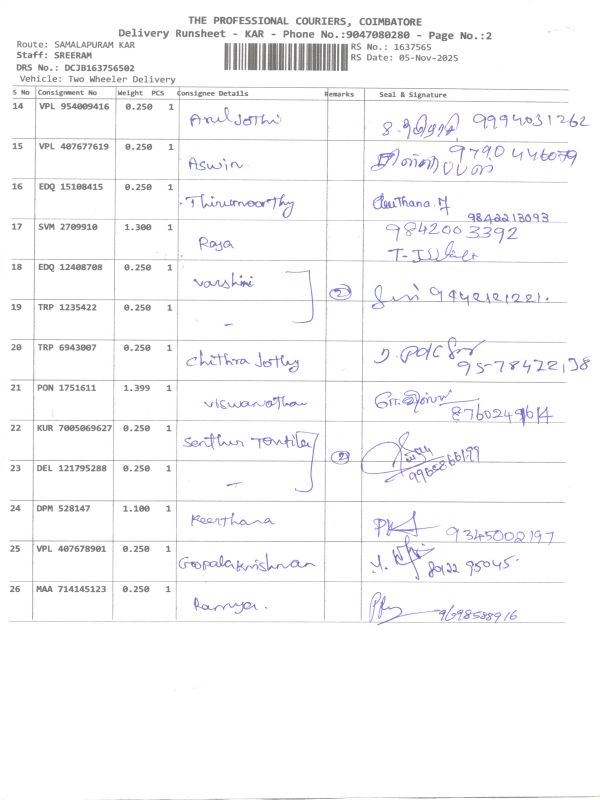 THE PROFESSIONAL COURIERS, COIMBATORE
Delivery Runsheet - KAR - Phone No.:9047080280 - Page No.:2
Route: SAMALAPURAM KAR RS No.: 1637565
Staff: SREERAM RS Date: 05-Nov-2025
DRS No.: DCJB163756502
Vehicle: Two Wheeler Delivery
S No Consignment No Weight PCS Consignee Details Remarks Seal & Signature
14 VPL 954009416 0.250 1 Aruljothi 9994031262
15 VPL 407677619 0.250 1 Aswin 9790446079
16 EDQ 15108415 0.250 1 Thirumoorthy 9842213093
17 SVM 2709910 1.300 1 Raja 9842003392
18 EDQ 12408708 0.250 1 Varshini 2
19 TRP 1235422 0.250 1 -
20 TRP 6943007 0.250 1 Chithra Jothy
21 PON 1751611 1.399 1 Viswanathan
22 KUR 7005069627 0.250 1 Senthur 2
23 DEL 121795288 0.250 1 -
24 DPM 528147 1.100 1 Keerthana 9345002197
25 VPL 407678901 0.250 1 Goopalakrishnan
26 MAA 714145123 0.250 1 Ramya. 9698588916